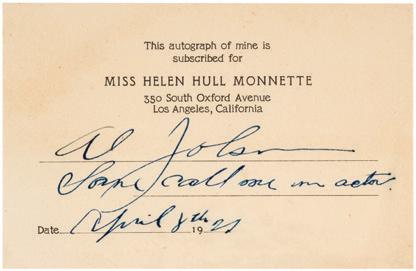 This autograph of mine is
subscribed for
MISS HELEN HULL MONNETTE
350 South Oxford Avenue
Los Angeles, California
Al Jolson
Some call me an actor.
Date April 8th 1921